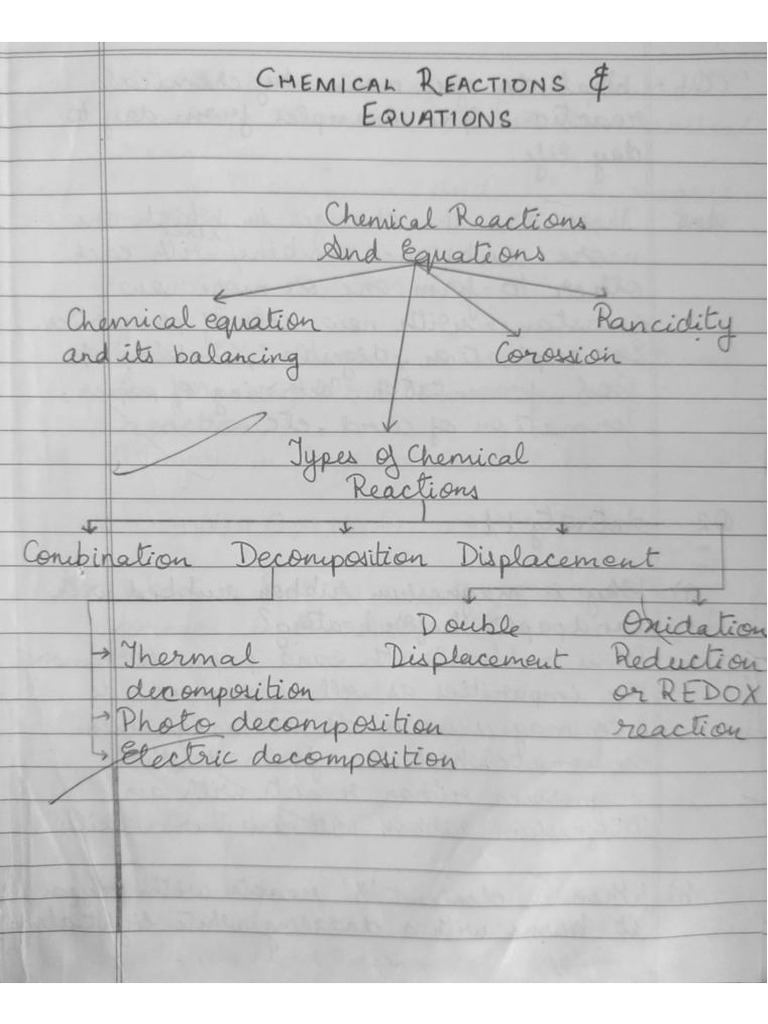 CHEMICAL REACTIONS &
EQUATIONS
Chemical Reactions
And Equations
Chemical equation
and its balancing
Rancidity
Corossion
Types of Chemical
Reactions
Combination Decomposition Displacement
Double
Displacement
Oxidation
Reduction
or REDOX
reaction
Thermal
decomposition
Photo decomposition
Electric decomposition